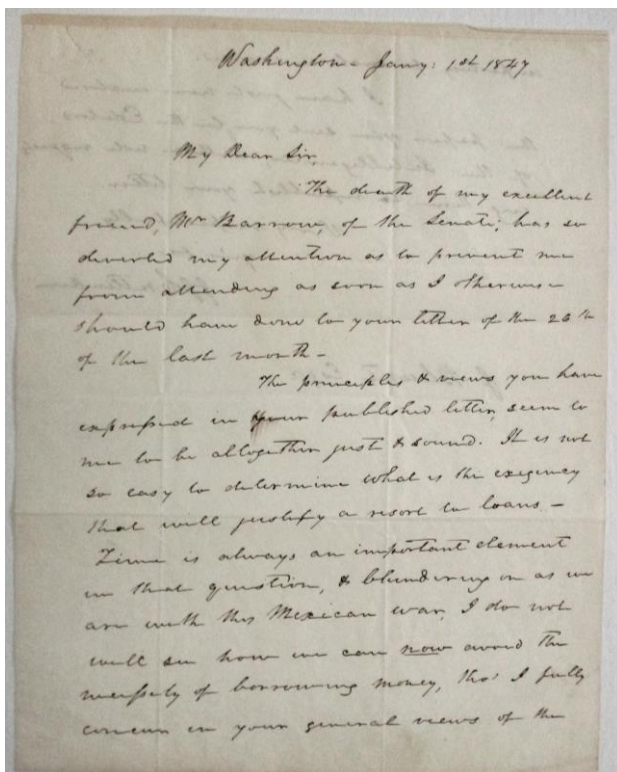 Washington - Jany: 1st 1847
My Dear Sir,
The death of my excellent
friend, Mr Barrow, of the Senate, has so
diverted my attention as to prevent me
from attending as soon as I otherwise
should have done to your letter of the 26th
of the last month -
The principles & views you have
expressed in your published letter, seem to
me to be altogether just & sound. It is not
so easy to determine what is the exegency
that will justify a resort to loans. -
Time is always an important element
in that question, & blundering on as we
are with this Mexican war, I do not
well see how we can now avoid the
necessity of borrowing money, tho' I fully
concur in your general views of the